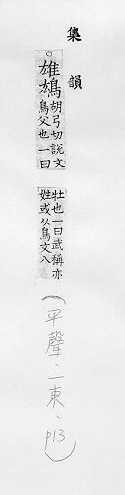 集韻
○雄鴆胡弓切說文
鳥父也一曰
牡也一曰武稱亦
姓或从鳥文八
(平聲·一東·p13)